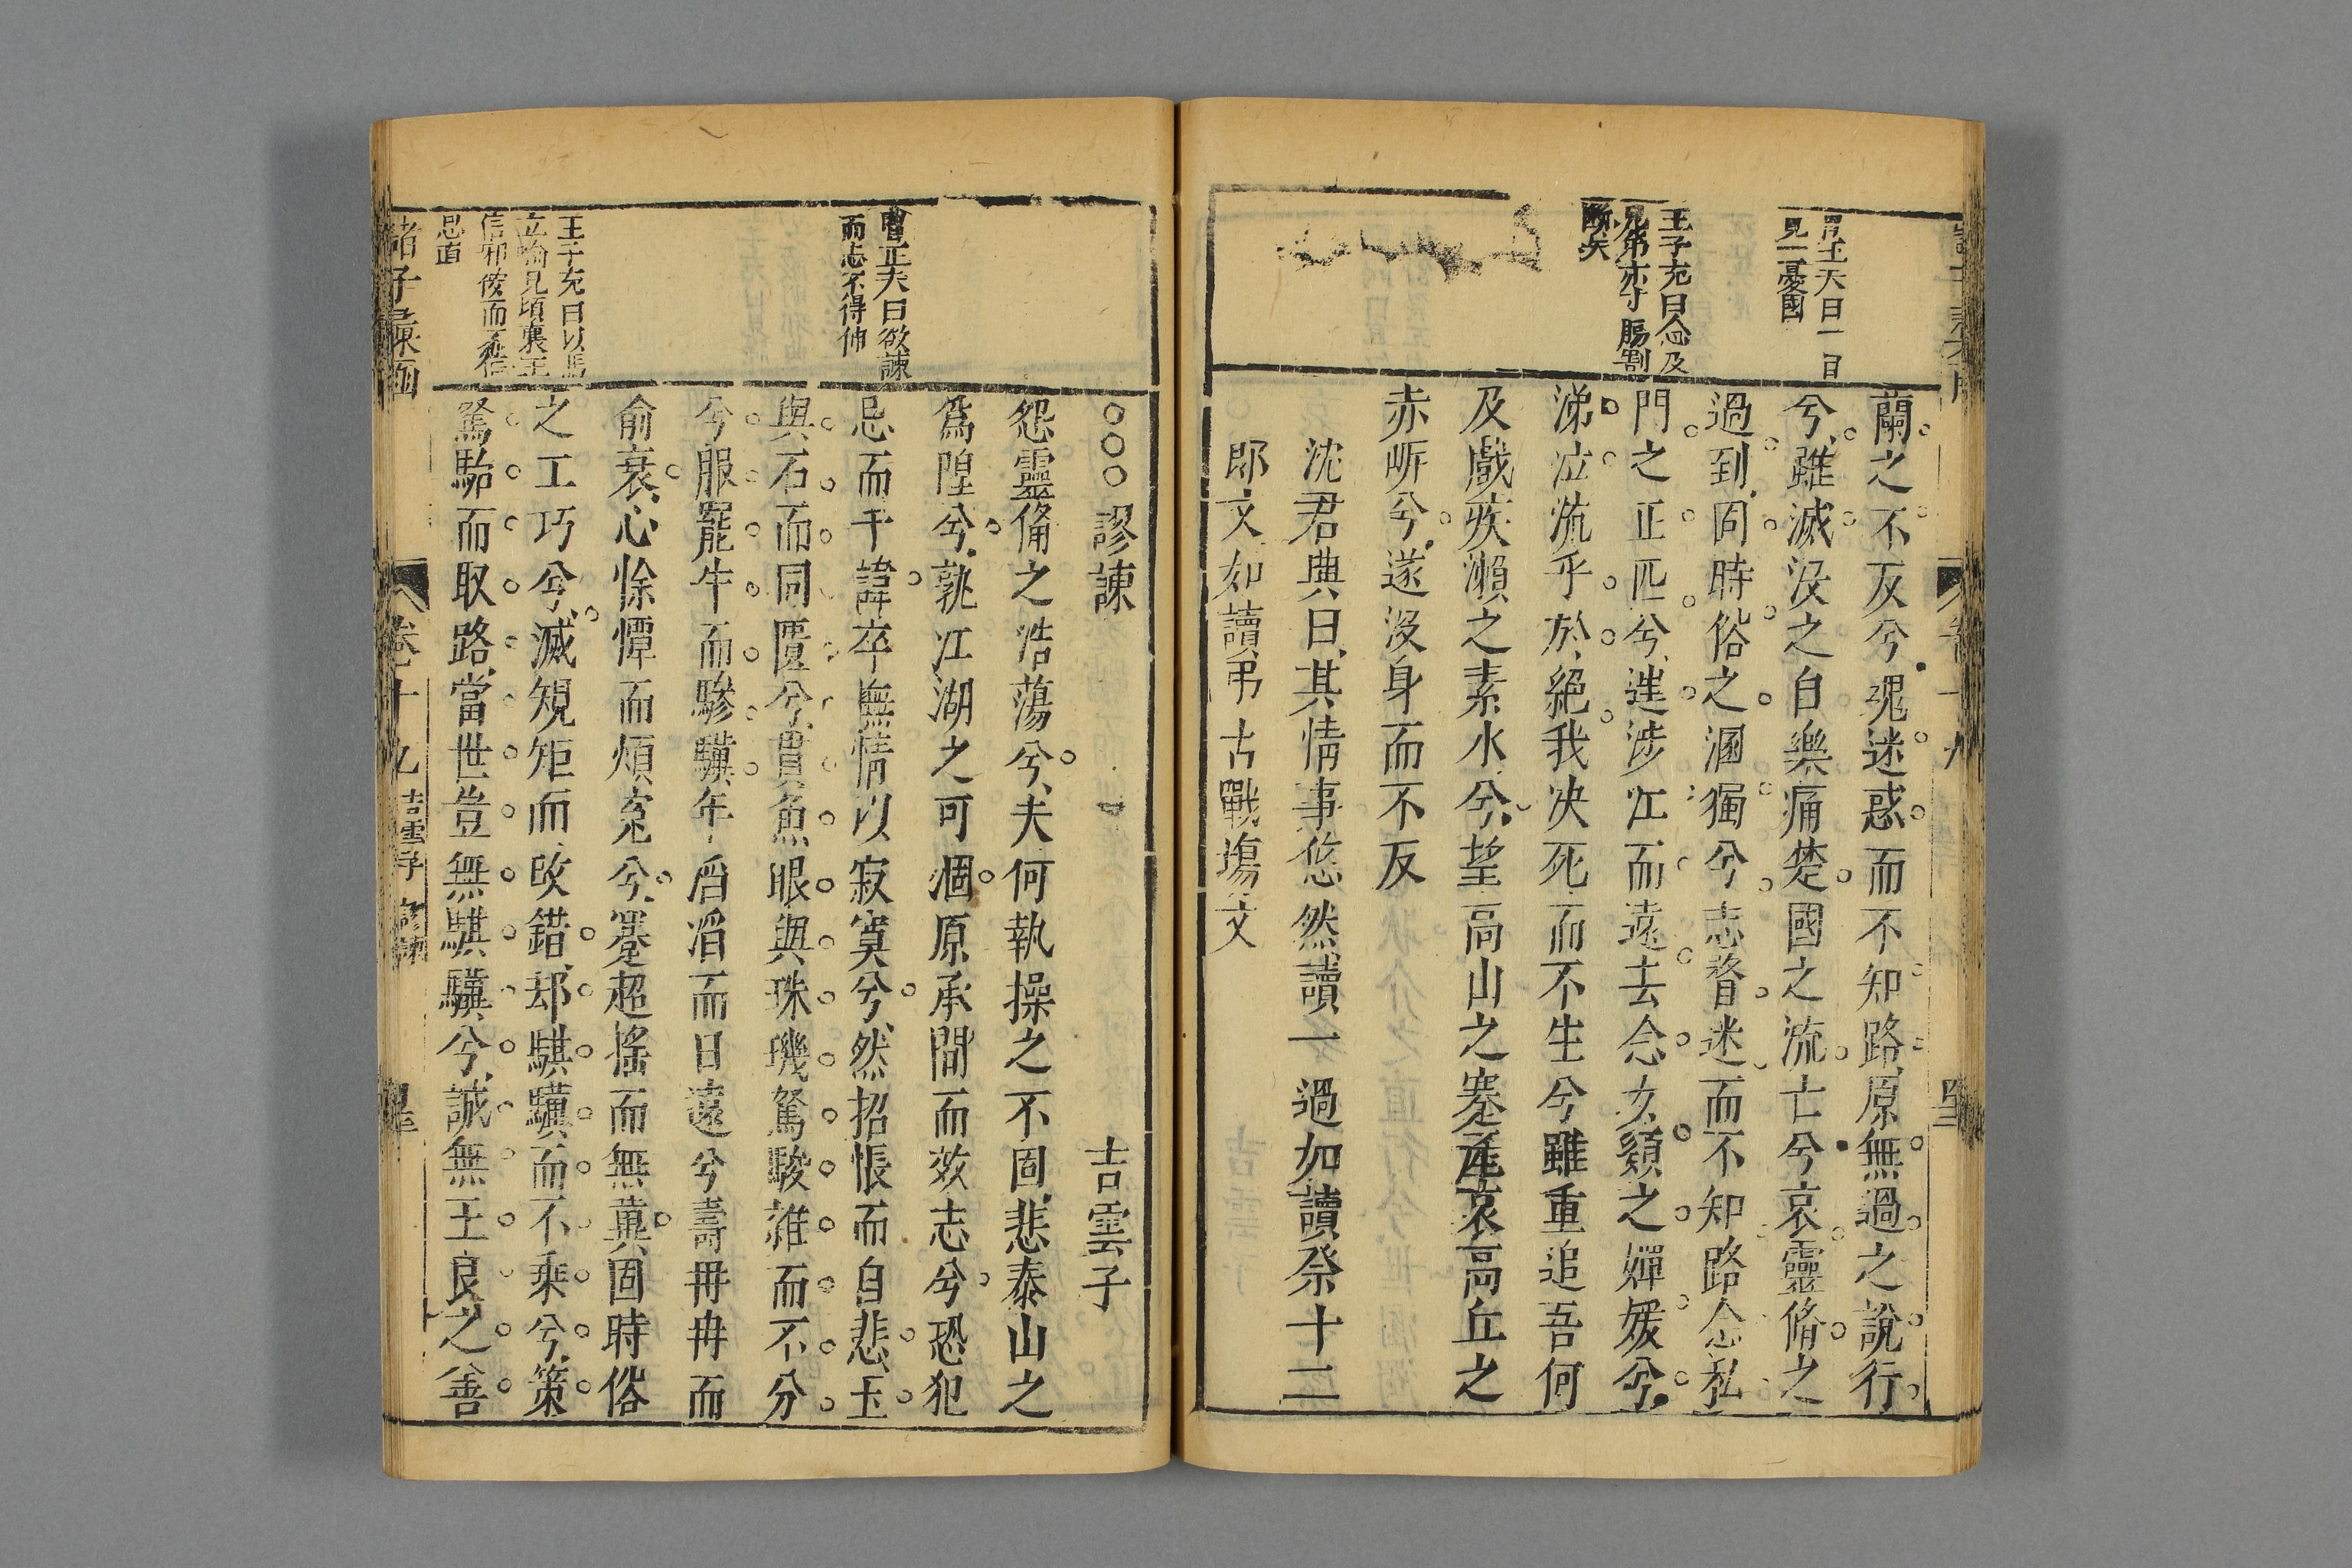 見一憂國
蘭之不反兮魂迷惑而不知路原無過之說行
兮雖滅沒之自樂痛楚國之流亡兮哀靈脩之
過到固時俗之溷獨兮志瞀迷而不知路念私
王子充曰念及
兄弟亦寸腸割
斷矣
門之正匹兮遙涉江而遠去念女嬃之嬋媛兮
涕泣流乎於絕我決死而不生兮雖重追吾何
及戲疾瀨之素水兮望高山之蹇產哀高丘之
赤岸兮遂沒身而不反
沈君典曰其情事悠然讀一過如讀祭十二
郎文如讀弔古戰塲文
○○○謬諫
吉雲子
怨靈脩之浩蕩兮夫何執操之不固悲泰山之
爲隍兮孰江湖之可涸原承間而效志兮恐犯
曾正夫曰欲諫
而志不得伸
忌而干諱卒無情以寂寞兮然招悵而自悲玉
與石而同匱兮貫魚眼與珠璣駑駿雜而不分
兮服罷牛而驂驥年滔滔而日遠兮壽冉冉而
俞衰心悇憛而煩寃兮蹇超搖而無冀固時俗
王子充曰以馬
立喻見頃襄王
信邪佞而不任
忠直
之工巧兮滅規矩而改錯却騏驥而不乘兮策
駑駘而取路當世豈無騏驥兮誠無王良之善
諸子彙函
卷十九
吉雲子
謬諫